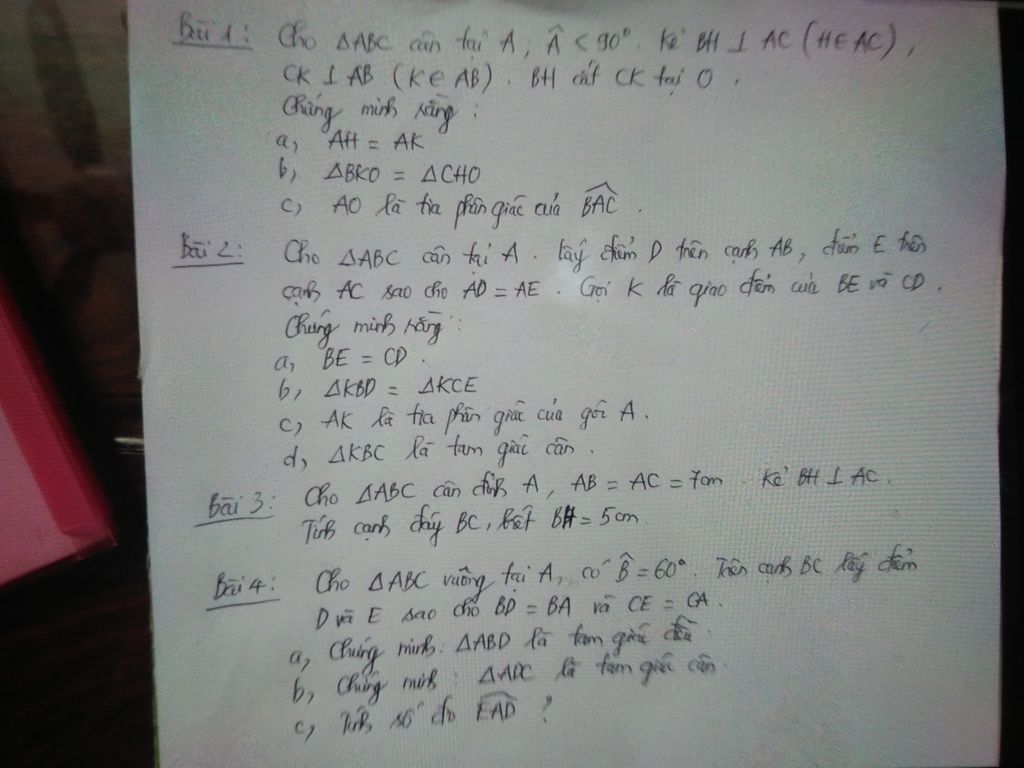 Bài 1: Cho ΔABC cân tại A, Â < 90°. Kẻ BH ⊥ AC (H∈AC),
CK ⊥ AB (K∈AB). BH cắt CK tại O.
Chứng minh rằng:
a, AH = AK
b, ΔBKO = ΔCHO
c, AO là tia phân giác của BAC.
Bài 2: Cho ΔABC cân tại A. Lấy điểm D trên cạnh AB, điểm E trên
cạnh AC sao cho AD = AE. Gọi K là giao điểm của BE và CD.
Chứng minh rằng:
a, BE = CD.
b, ΔKBD = ΔKCE
c, AK là tia phân giác của góc A.
d, ΔKBC là tam giác cân.
Bài 3: Cho ΔABC cân đỉnh A, AB = AC = 7cm. Kẻ BH ⊥ AC.
Tính cạnh đáy BC, biết BH = 5cm.
Bài 4: Cho ΔABC vuông tại A, có B̂ = 60°. Trên cạnh BC lấy điểm
D và E sao cho BD = BA và CE = CA.
a, Chứng minh: ΔABD là tam giác đều.
b, Chứng minh: ΔADC là tam giác cân.
c, Tính số đo EAD ?